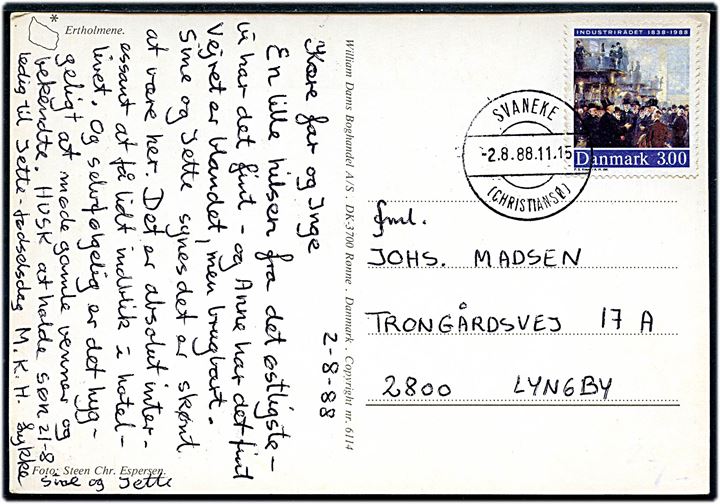 * Ertholmene.
2-8-88
Kære far og Inge
En lille hilsen fra det østligste -
vi har det fint - og Anne har det fint
Vejret er blandet, men brugbart.
Sine og Jette synes det er skønt
at være her. Det er absolut inter-
essant at få lidt indblik i hotel-
livet. Og selvfølgelig er det hyg-
geligt at møde gamle venner og
bekendte. HUSK at holde søn 21-8
ledig til Jette-fødselsdag M.K.H.
Sine og Jette
Foto: Steen Chr. Espersen.
William Dams Boghandel A/S . DK-3700 Rønne . Danmark . Copyright nr. 6114
INDUSTRIRÅDET 1838-1988
Danmark 3.00
SVANEKE
-2.8.88.11.15
(CHRISTIANSØ)
fml.
JOHS. MADSEN
TRONGÅRDSVEJ 17 A
2800 LYNGBY